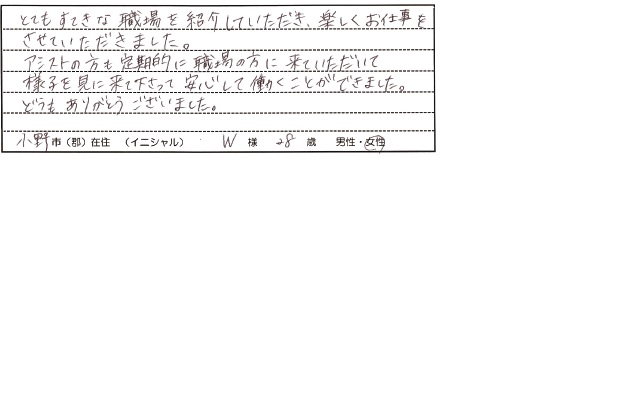 とてもすてきな職場を紹介していただき、楽しくお仕事を
させていただきました。
アシストの方も定期的に職場の方に来ていただいて
様子を見に来て下さって安心して働くことができました。
どうもありがとうございました。
小野市(郡)在住 (イニシャル) W 様 28 歳 男性・女性